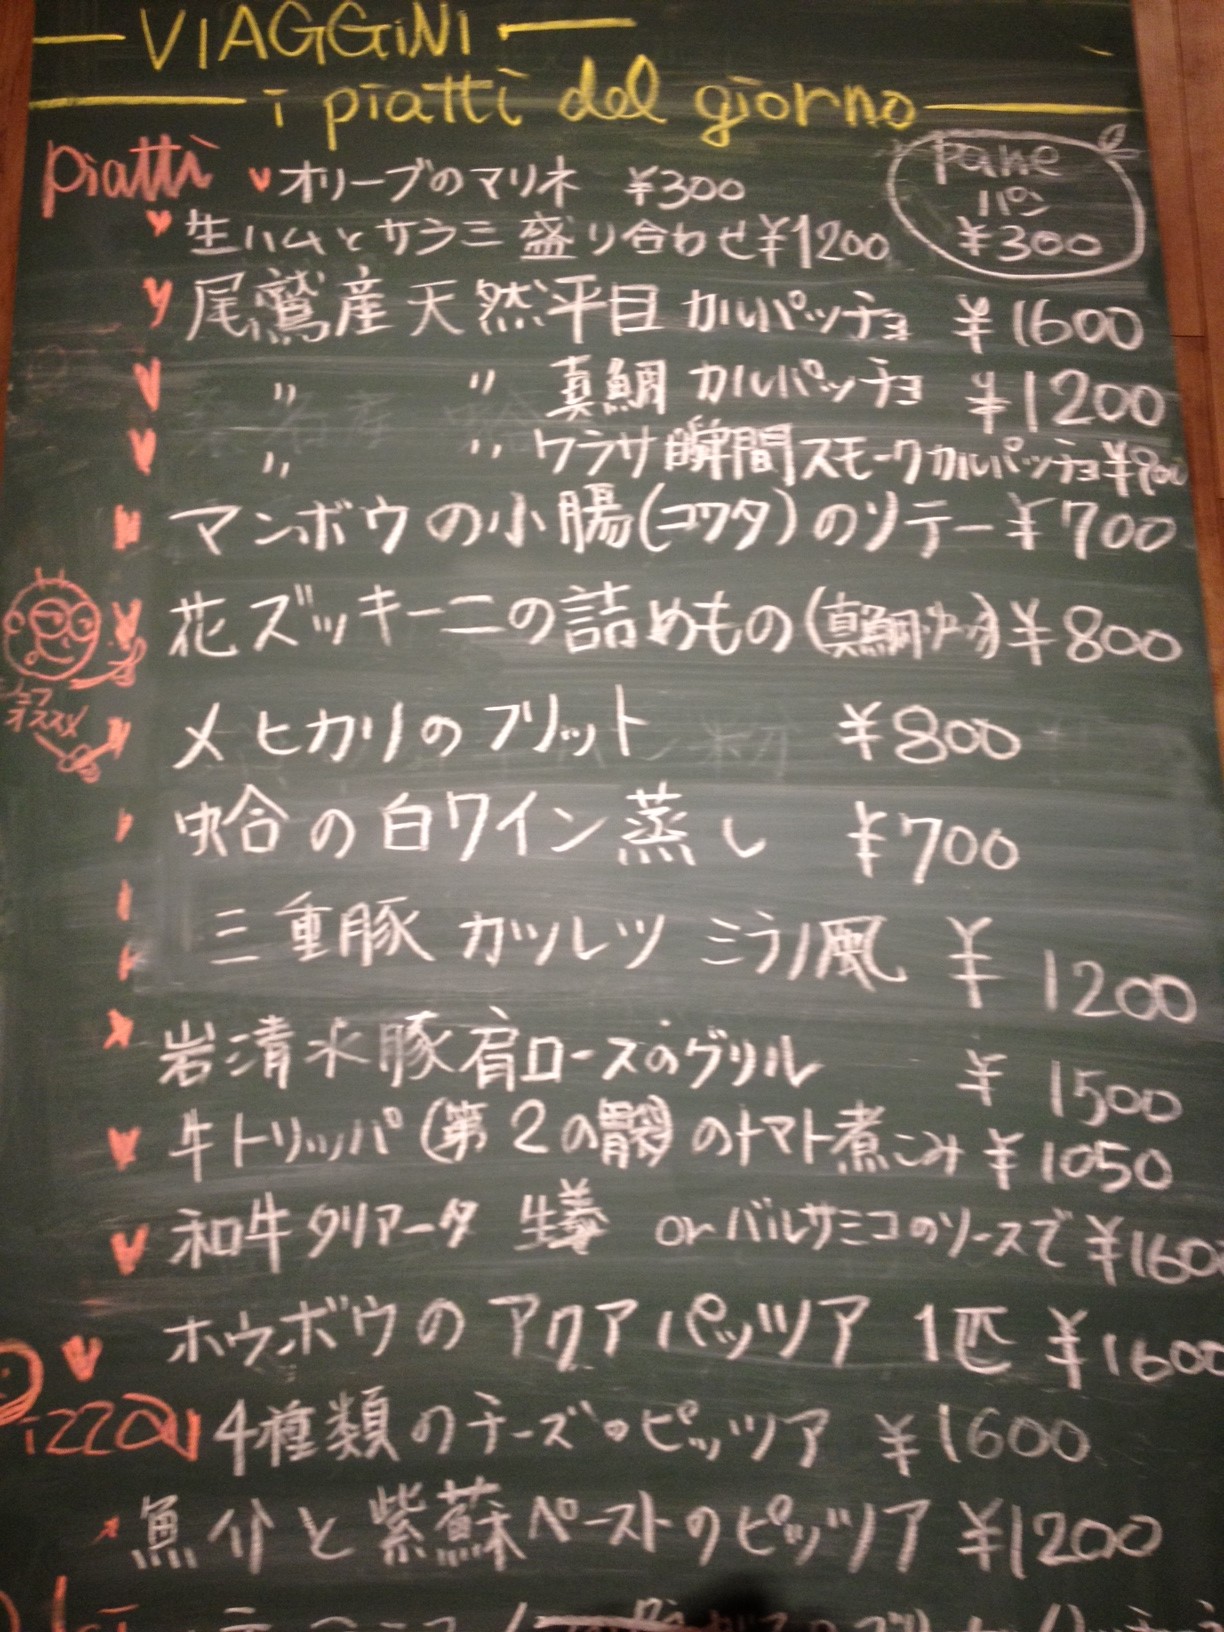 VIAGGiNI
i piatti del giorno
piatti
オリーブのマリネ ¥300
pane
パン
¥300
生ハムとサラミ盛り合わせ¥1200
尾鷲産天然平目 カルパッチョ ¥1600
〃 〃 真鯛 カルパッチョ ¥1200
〃 〃 ワラサ瞬間スモークカルパッチョ¥900
マンボウの小腸(コワタ)のソテー¥700
花ズッキーニの詰めもの(真鯛 ¥800
シェフ
オススメ
メヒカリのフリット ¥800
蛤の白ワイン蒸し ¥700
三重豚 カツレツ ミラノ風 ¥1200
岩清水豚肩ロースのグリル ¥1500
牛トリッパ(第2の胃袋)のトマト煮こみ ¥1050
和牛タリアータ or バルサミコのソースで ¥1600
ホウボウの アクアパッツァ 1匹 ¥1600
izza
4種類のチーズのピッツァ ¥1600
魚介と紫蘇ペーストのピッツァ ¥1200